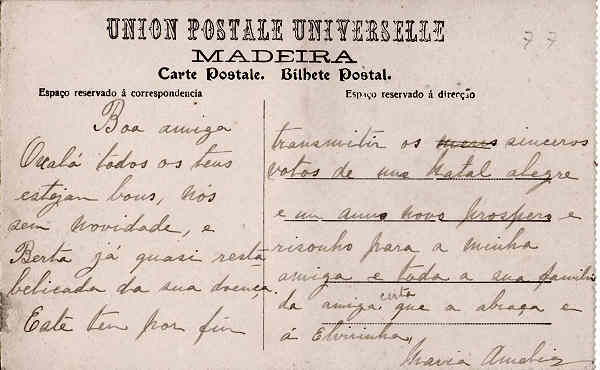 UNION POSTALE UNIVERSELLE
77
MADEIRA
Carte Postale. Bilhete Postal.
Espaço reservado á correspondencia
Espaço reservado á direcção
Boa amiga
Oxalá todos os teus
estejam bons, nós
sem novidade, e
Berta já quasi resta
belicada da sua doença.
Este tem por fim
transmitir os meus sinceros
votos de um Natal alegre
e um anno novo prospero e
risonho para a minha
amiga e toda a sua familia
da amiga certa que a abraça e
á Elvirinha,
Maria Amelia